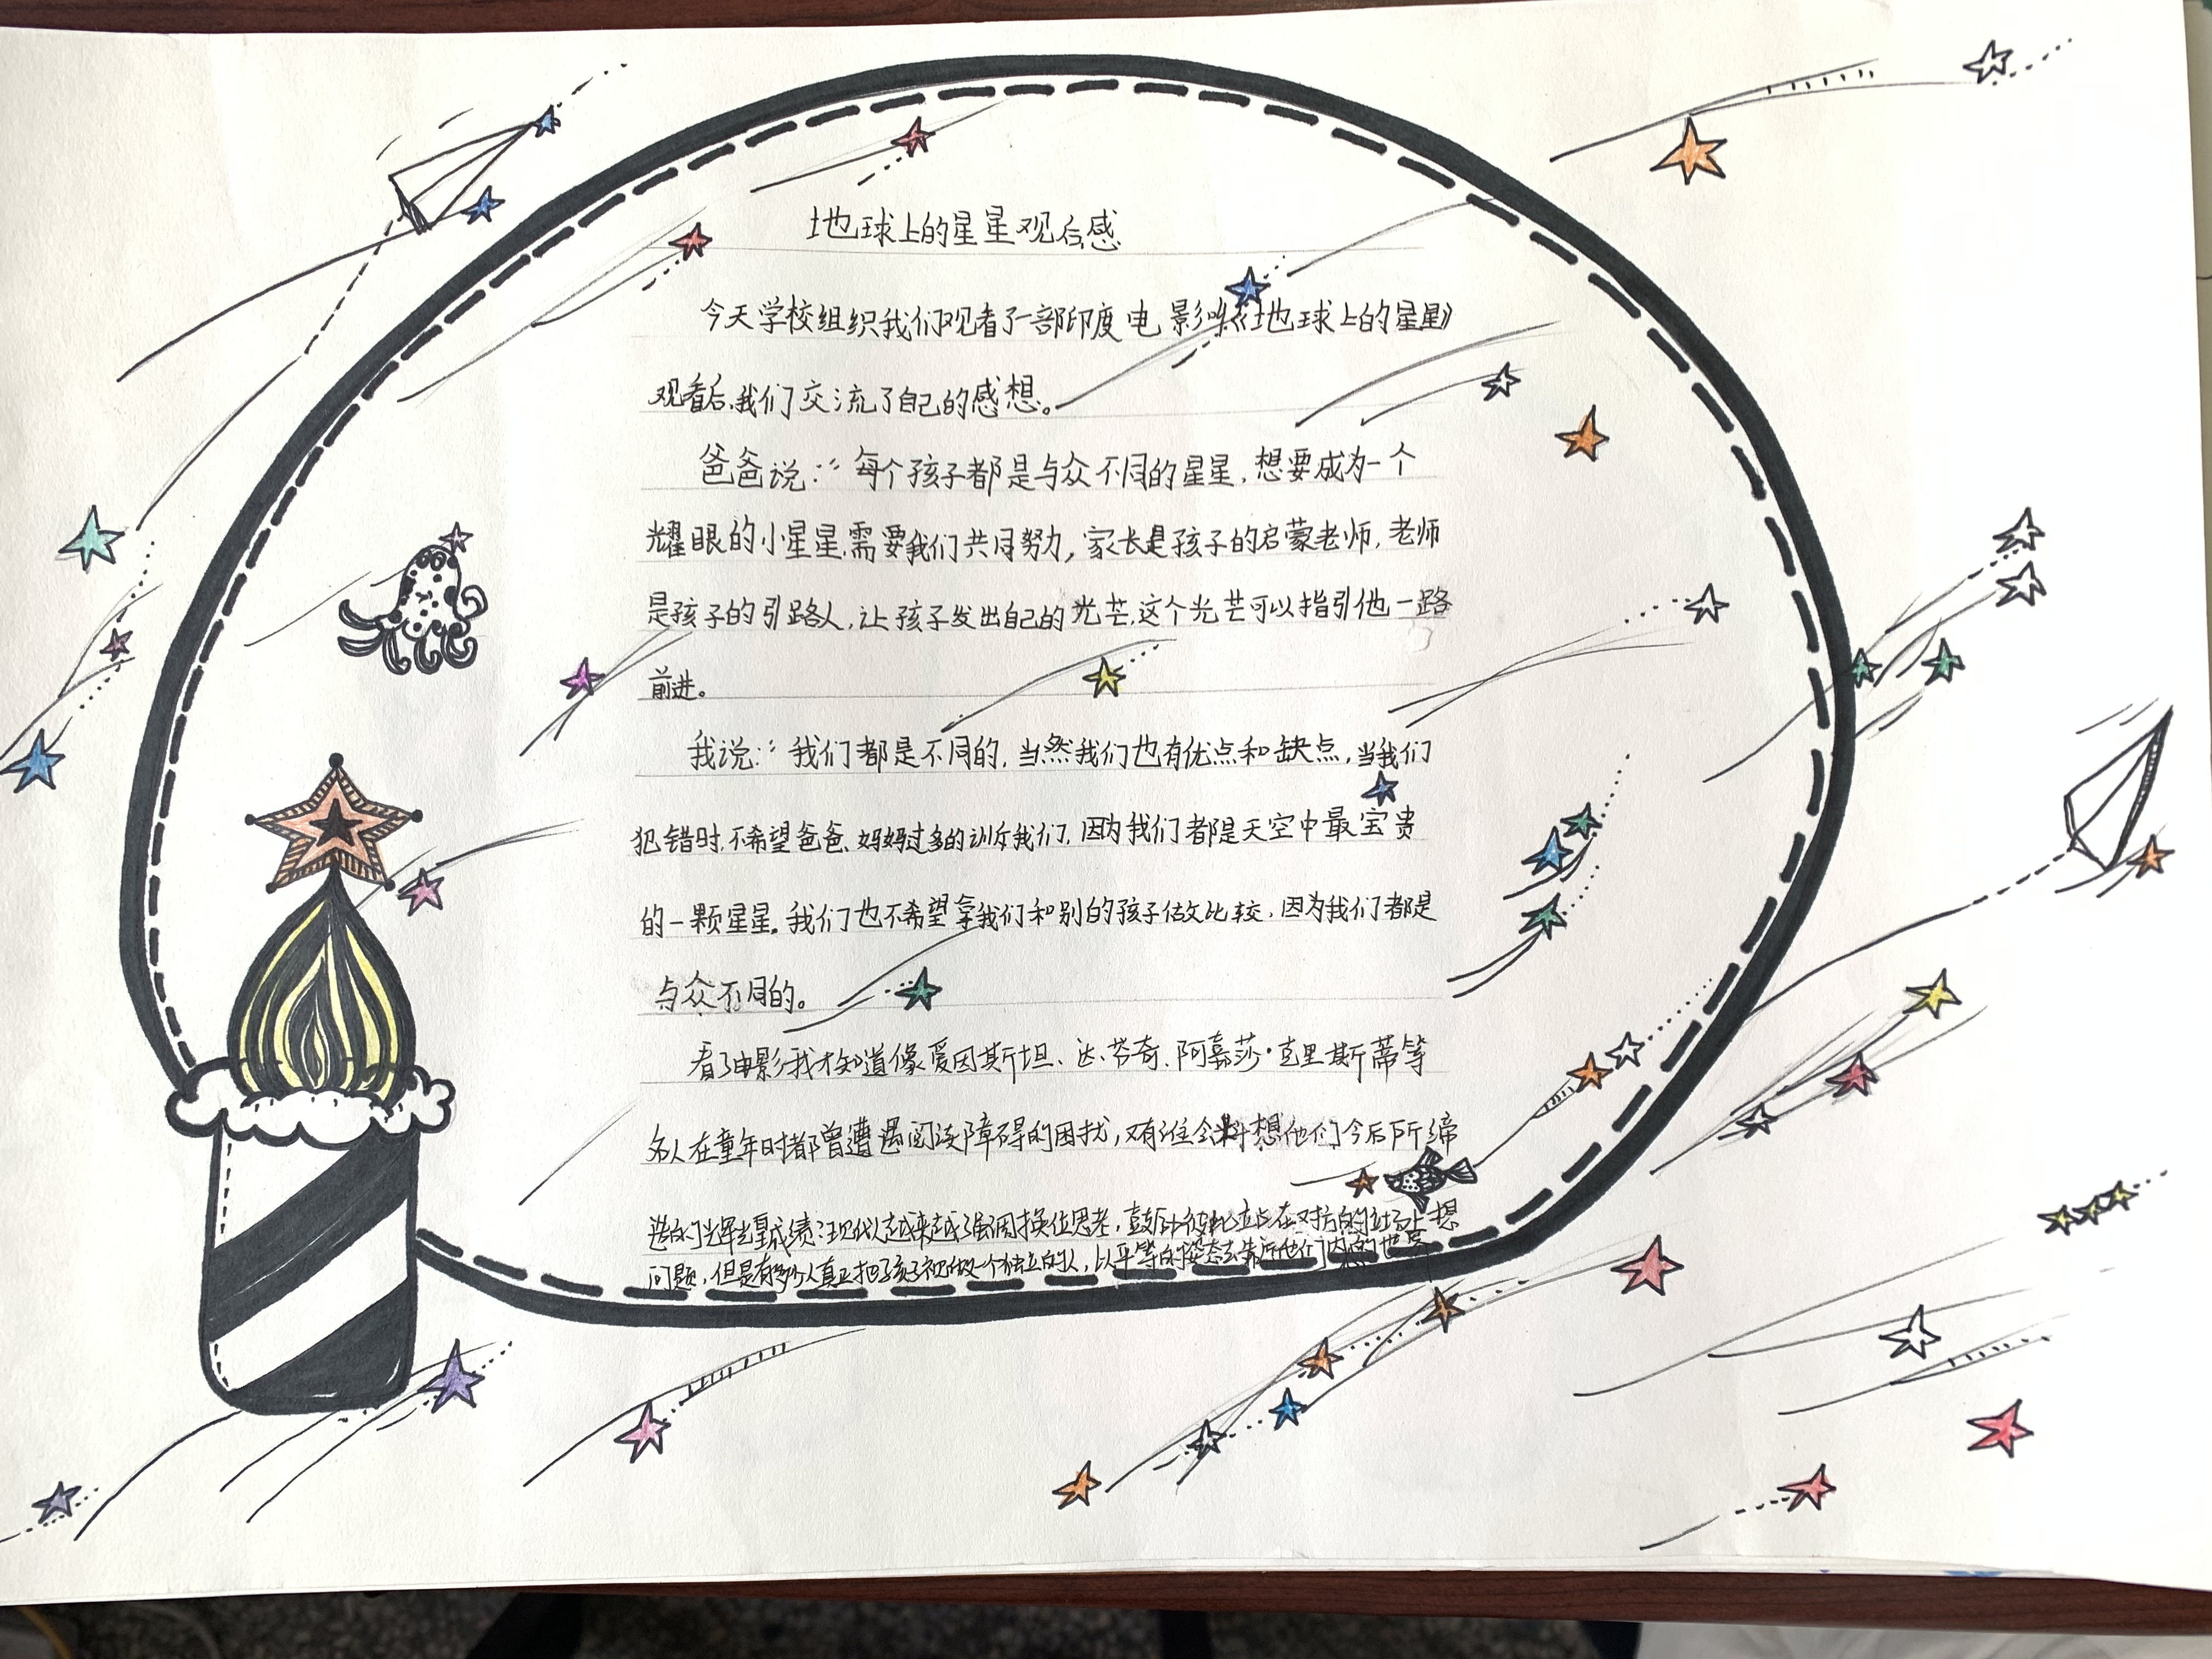 地球上的星星观后感
今天学校组织我们观看了一部印度电影《地球上的星星》
观看后,我们交流了自己的感想。
爸爸说:“每个孩子都是与众不同的星星,想要成为一个
耀眼的小星星,需要我们共同努力,家长是孩子的启蒙老师,老师
是孩子的引路人,让孩子发出自己的光芒,这个光芒可以指引他一路
前进。
我说:“我们都是不同的,当然我们也有优点和缺点,当我们
犯错时,不希望爸爸、妈妈过多的训斥我们,因为我们都是天空中最宝贵
的一颗星星。我们也不希望拿我们和别的孩子做比较,因为我们都是
与众不同的。
看了电影我才知道像爱因斯坦、达·芬奇、阿嘉莎·克里斯蒂等
名人在童年时都曾遭遇阅读障碍的困扰,又有谁会料想他们今后所缔
造的光辉成绩;现代人越来越强调换位思考,鼓励彼此站在对方的立场上想
问题,但是有多少人真正把孩子视做一个独立的人,以平等的姿态去靠近他们内心的世界